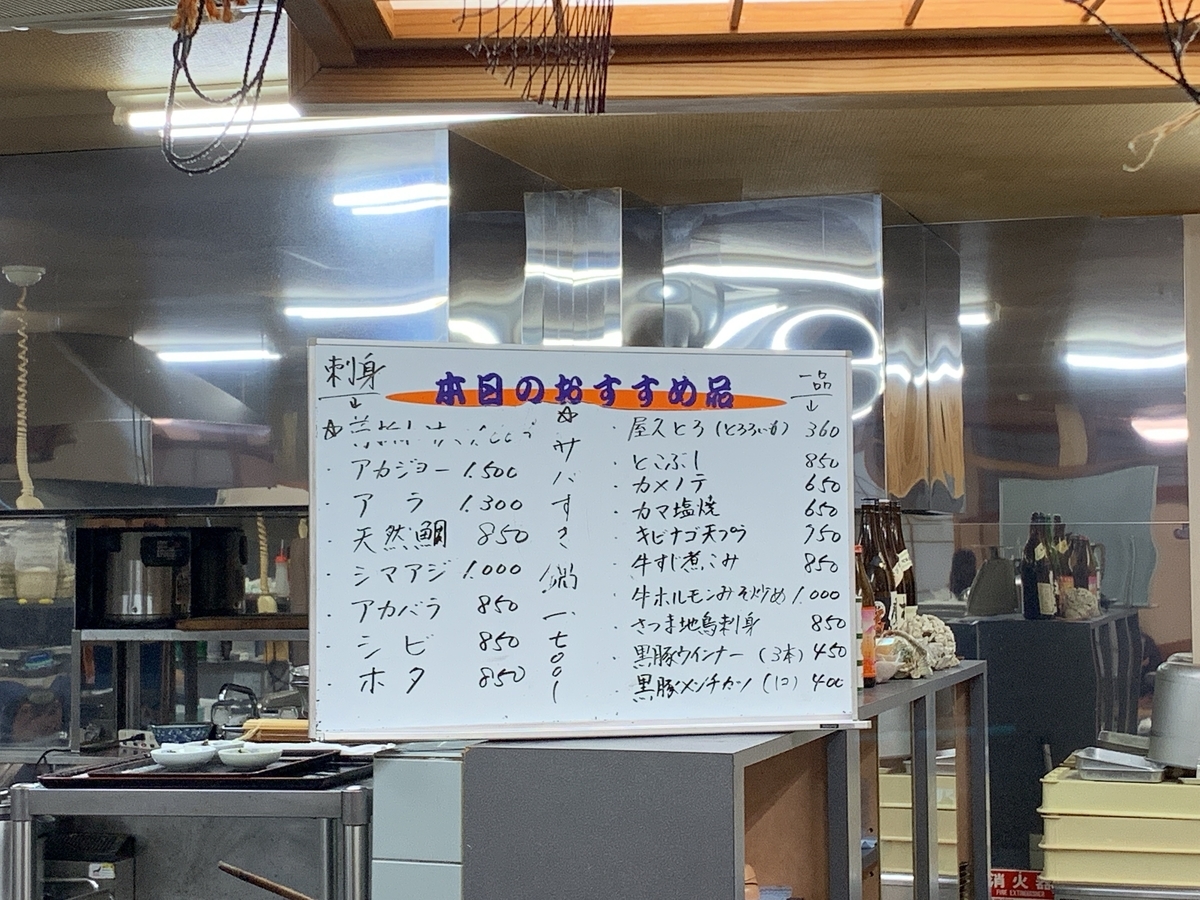 刺身
↓
本日のおすすめ品
一品
↓
☆
・アカジョー 1.500
・アラ 1.300
・天然鯛 850
・シマアジ 1.000
・アカバラ 850
・シビ 850
・ホタ 850
☆サバすき鍋 一七00
・屋久とろ(とろろいも) 360
・とこぶし 850
・カメノテ 650
・カマ塩焼 650
・キビナゴ天プラ 950
・牛すじ煮こみ 850
・牛ホルモンみそ炒め 1.000
・さつま地鳥刺身 850
・黒豚ウインナー(3本) 450
・黒豚メンチカツ(1コ) 400
消火器
FIRE EXTINGUISHER